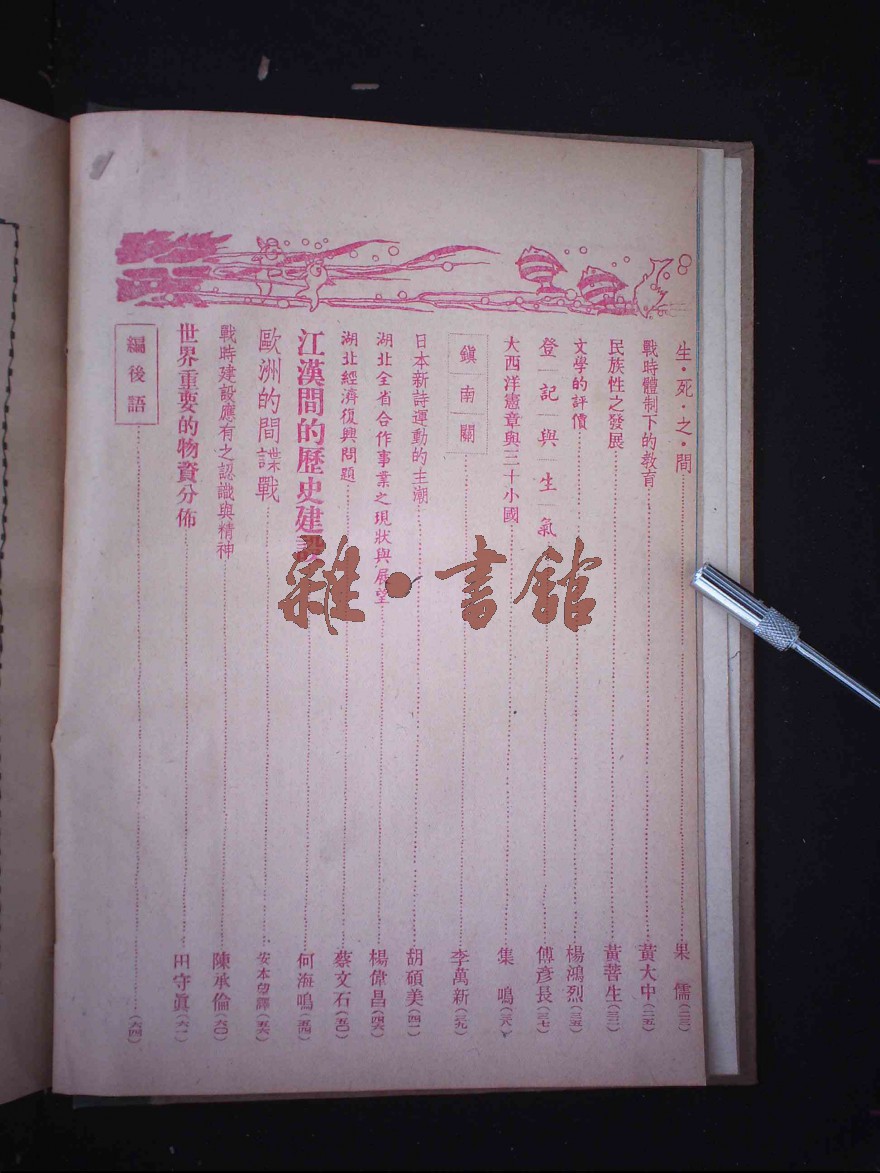 生·死·之·間 果儒(二三)
戰時體制下的教育 黃大中(二五)
民族性之發展 黃菩生(三二)
文學的評價 楊鴻烈(三五)
登記與生氣 傅彥長(三七)
大西洋憲章與三十小國 集鳴(三八)
鎮南關 李萬新(三九)
日本新詩運動的主潮 胡碩美(四一)
湖北全省合作事業之現狀與展望 楊偉昌(四六)
湖北經濟復興問題 蔡文石(五〇)
江漢間的歷史建設 何海鳴(五四)
歐洲的間諜戰 安本 譯(五六)
戰時建設應有之認識與精神 陳承倫(六〇)
世界重要的物資分佈 田守眞(六一)
編後語 (六四)
雜·書館